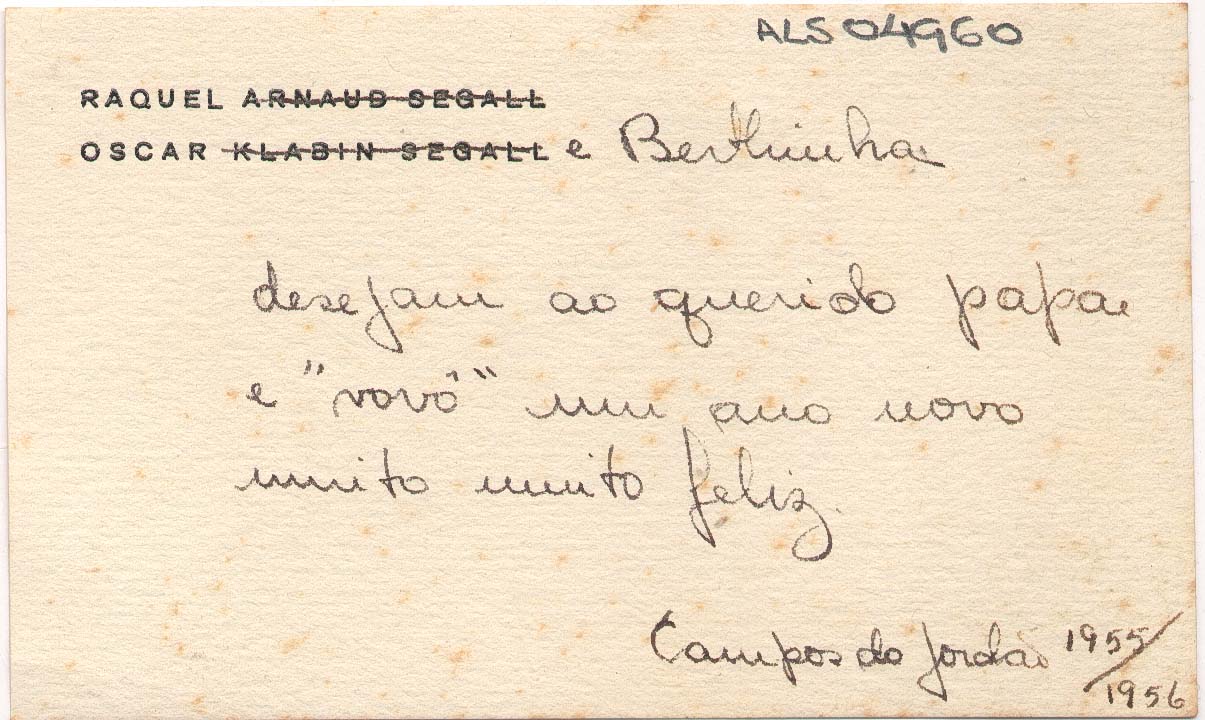 ALS 04960
RAQUEL ARNAUD SEGALL
OSCAR KLABIN SEGALL e Berthinha
desejam ao querido papai
e "vovô" um ano novo
muito muito feliz.
Campos do Jordão 1955/
1956